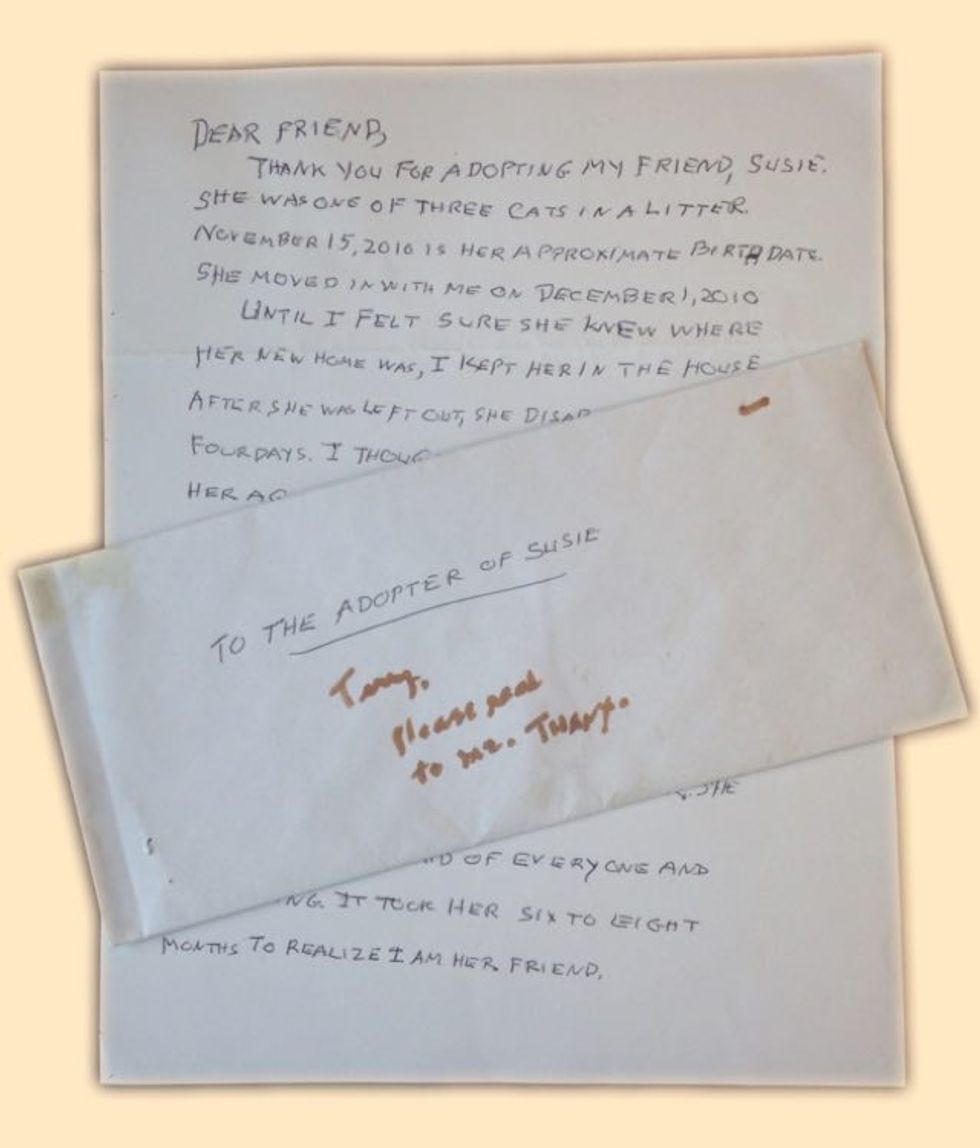 DEAR FRIEND,
THANK YOU FOR ADOPTING MY FRIEND, SUSIE.
SHE WAS ONE OF THREE CATS IN A LITTER.
NOVEMBER 15, 2010 IS HER APPROXIMATE BIRTHDATE.
SHE MOVED IN WITH ME ON DECEMBER 1, 2010
UNTIL I FELT SURE SHE KNEW WHERE
HER NEW HOME WAS, I KEPT HER IN THE HOUSE
AFTER SHE WAS LEFT OUT, SHE DISAP
FOUR DAYS. I THOUG
HER AG
TO THE ADOPTER OF SUSIE
please read
to me. Thanx.
SHE
D OF EVERYONE AND
NG. IT TOOK HER SIX TO EIGHT
MONTHS TO REALIZE I AM HER FRIEND.